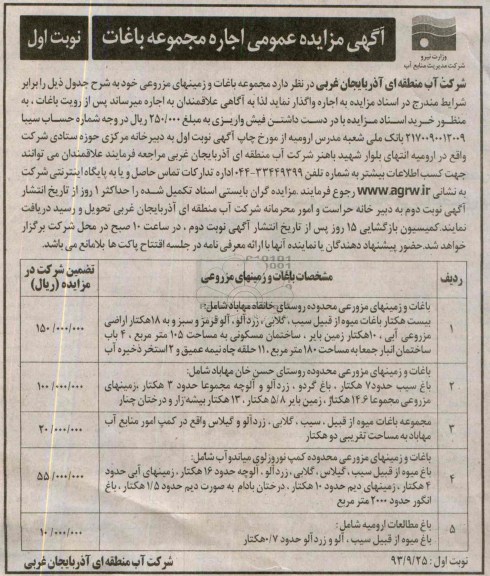 وزارت نیرو
شرکت مدیریت منابع آب
آگهی مزایده عمومی اجاره مجموعه باغات
نوبت اول
شرکت آب منطقه ای آذربایجان غربی در نظر دارد مجموعه باغات و زمینهای مزروعی خود به شرح جدول ذیل را برابر
شرایط مندرج در اسناد مزایده به اجاره واگذار نماید لذا به آگاهی علاقمندان به اجاره میرساند پس از رویت باغات ، به
منظور خرید اسناد مزایده با در دست داشتن فیش واریزی به مبلغ ۲۵۰/۰۰۰ ریال در وجه شماره حساب سیبا
۲۱۷۰۰۹۰۰۱۳۰۰۹ بانک ملی شعبه مدرس ارومیه از مورخ چاپ آگهی نوبت اول به دبیرخانه مرکزی حوزه ستادی شرکت
واقع در ارومیه انتهای بلوار شهید باهنر شرکت آب منطقه ای آذربایجان غربی مراجعه فرمایند علاقمندان می توانند
جهت کسب اطلاعات بیشتر به شماره تلفن ۳۳۴۴۹۳۹۹-۰۴۴ اداره تدارکات تماس حاصل و یا به پایگاه اینترنتی شرکت
به نشانی www.agrw.ir رجوع فرمایند .مزایده گران بایستی اسناد تکمیل شده را حداکثر ۱ روز از تاریخ انتشار
آگهی نوبت دوم به دبیر خانه حراست و امور محرمانه شرکت آب منطقه ای آذربایجان غربی تحویل و رسید دریافت
نمایند.کمیسیون بازگشایی ۱۵ روز پس از تاریخ انتشار آگهی نوبت دوم ، در ساعت ۱۰ صبح در محل شرکت برگزار
خواهد شد.حضور پیشنهاد دهندگان یا نماینده آنها با ارائه معرفی نامه در جلسه افتتاح پاکت ها بلامانع می باشد.
ردیف
مشخصات باغات و زمینهای مزروعی
تضمین شرکت در مزایده (ریال)
۱
باغات و زمینهای مزورعی محدوده روستای خانقاه مهاباد شامل:
بیست هکتار باغات میوه از قبیل سیب ، گلابی ، زردآلو ، آلو قرمز و سبز و به ۱۸هکتار اراضی
مزروعی آبی ، ۱۰هکتار زمین بایر ، ساختمان مسکونی به مساحت ۱۰۵ متر مربع ، ۴ باب
ساختمان انبار جمعا به مساحت ۱۸۰ متر مربع ، ۱۱ حلقه چاه نیمه عمیق و ۲ استخر ذخیره آب
۱۵۰/۰۰۰/۰۰۰
۲
باغات و زمینهای مزورعی محدوده روستای حسن خان مهاباد شامل:
باغ سیب حدود ۷ هکتار ، باغ گردو ، زردآلو و آلوچه مجموعا حدود ۳ هکتار ،زمینهای
مزروعی مجموعا ۱۴.۶ هکتار ، زمین بایر ۵/۸ هکتار ، ۱۳ هکتار بیشه زار و درختان چنار
۱۰۰/۰۰۰/۰۰۰
۳
مجموعه باغات میوه از قبیل ، سیب ، گلابی ، زردآلو و گیلاس واقع در کمپ امور منابع آب
مهاباد به مساحت تقریبی دو هکتار
۲۰/۰۰۰/۰۰۰
۴
باغات و زمینهای مزورعی محدوده کمپ نوروزلوی میاندوآب شامل:
باغ میوه از قبیل سیب ، گیلاس ، گلابی ، زردآلو ، آلوچه حدود ۱۶ هکتار ، زمینهای آبی حدود
۴ هکتار ، زمینهای دیم حدود ۱۰ هکتار . درختان بادام به صورت دیم حدود ۱/۵ هکتار ، باغ
انگور حدود ۲۰۰۰ متر مربع
۵۵/۰۰۰/۰۰۰
۵
باغ مطالعات ارومیه شامل:
باغ میوه از قبیل سیب ، آلو و زردآلو حدود ۰/۷ هکتار
۱۰/۰۰۰/۰۰۰
نوبت اول : ۹۳/۹/۲۵
شرکت آب منطقه ای آذربایجان غربی